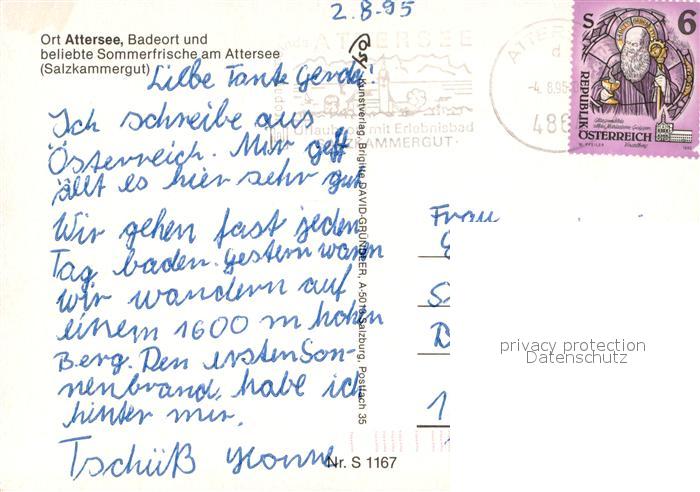 2.8.95
Ort Attersee, Badeort und
beliebte Sommerfrische am Attersee
(Salzkammergut)
Liebe Tante Gerda!
Ich schreibe aus
Österreich. Mir gef
ällt es hier sehr gut
Wir gehen fast jeden
Tag baden. Gestern waren
wir wandern auf
einem 1600 m hohen
Berg. Den ersten Son-
nenbrand, habe ich
hinter mir.
Tschüß Yvonne
Nr. S 1167
Kunstverlag, Brigitte DAVID-GRÜNDLER, A-5010 Salzburg, Postfach 35
ATTERSEE
Urlaub mit Erlebnisbad
SALZKAMMERGUT
-4. 8.95
486
S 6
REPUBLIK
ÖSTERREICH
Frau
D
1
privacy protection
Datenschutz